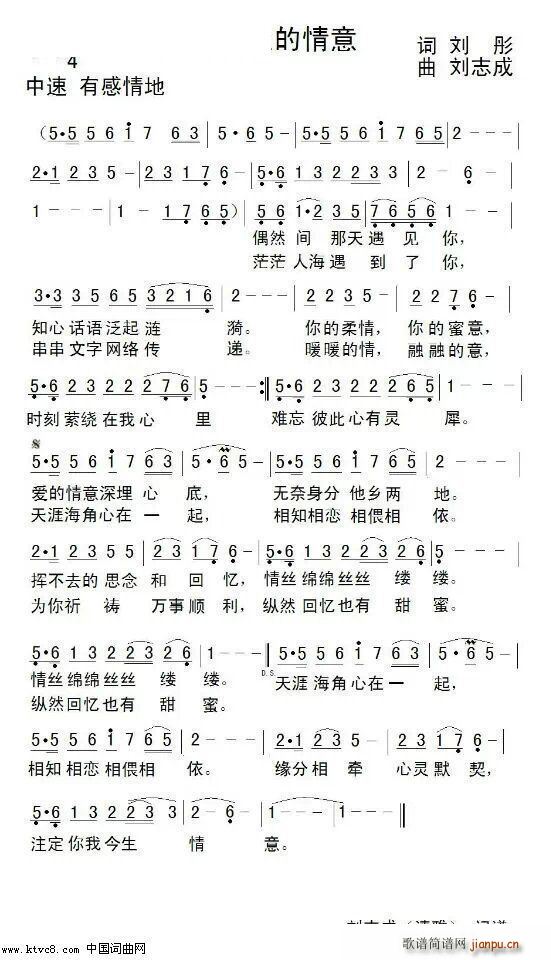 的情意
词 刘 彤
4
曲 刘志成
中速 有感情地
(5·5 5 6 1 7 6 3 | 5·6 5 - | 5·5 5 6 1 7 6 5 | 2 - - -
2·1 2 3 5 - | 2 3 1 7 6 - | 5·6 1 3 2 2 3 3 | 2 - · 6 -
1 - - - | 1 - 1 7 6 5) | 5 6 1·2 3 5 | 7 6 5 6 1 - |
偶然 间 那天 遇 见 你，
茫茫 人海 遇 到 了 你，
3·3 3 5 6 5 3 2 1 6 | 2 - - - | 2·2 3 5 3 - | 2 2 7 6 - |
知心 话语 泛起 涟 漪。 你的 柔情， 你的 蜜意，
串串 文字 网络 传 递。 暖暖 的情， 融融 的意，
5·6 2 2 2 2 7 6 | 5 - - - :| 5·6 1 3 2 2 2 6 5 | 1 - - - |
时刻 萦绕 在我 心 里 难忘 彼此 心有 灵 犀。
5·5 5 6 1 7 6 3 | 5·6 5 - | 5·5 5 6 1 7 6 5 | 2 - - - |
爱的 情意 深埋 心 底， 无奈 身分 他乡 两 地。
天涯 海角 心在 一 起， 相知 相恋 相偎 相 依。
2·1 2 3 5 - | 2 3 1 7 6 - | 5·6 1 3 2 2 3 2 6 | 5 - - - |
挥不去的 思念 和 回 忆， 情丝 绵绵 丝丝 缕 缕。
为你 祈 祷 万事 顺 利， 纵然 回忆 也有 甜 蜜。
5·6 1 3 2 2 2 6 5 | 1 - - - | 5·5 5 6 1 7 6 3 | 5·6 5 - |
D.S.
情丝 绵绵 丝丝 缕 缕。 天涯 海角 心在 一 起，
纵然 回忆 也有 甜 蜜。
5·5 5 6 1 7 6 5 | 2 - - - | 2·1 2 3 5 - | 2 3 1 7 6 - |
相知 相恋 相偎 相 依。 缘分 相 牵 心灵 默 契，
5·6 1 3 2 2 3 2 6 | 1 - - - | 1 - - - ||
注定 你我 今生 情 意。
www.ktvc8.com 中国词曲网
歌谱简谱网
jianpu.cn